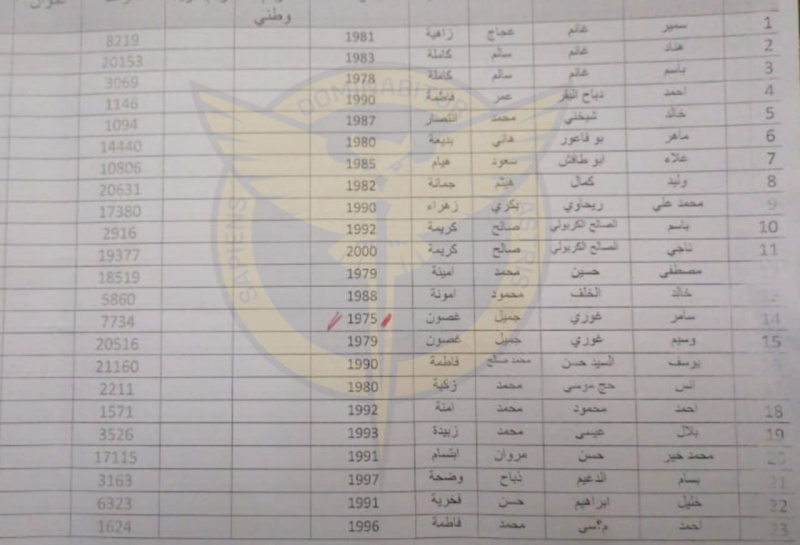 وطني
1 سمير غانم عجاج زاهية 1981 8219
2 هناد غانم سالم كاملة 1983 20153
3 باسم غانم سالم كاملة 1978 3069
4 احمد دباح البقر عمر فاطمة 1990 1146
5 خالد شيخني محمد انتصار 1987 1094
6 ماهر بو فاعور هاني بديعة 1980 14440
7 علاء ابو طافش سعود هيام 1985 10806
8 وليد كمال هيثم جمانة 1982 20631
9 محمد علي ريحاوي بكري زهراء 1990 17380
10 باسم الصالح الكربولي صالح كريمة 1992 2916
11 ناجي الصالح الكربولي صالح كريمة 2000 19377
مصطفى حسين محمد امينة 1979 18519
خالد الخلف محمود امونة 1988 5860
14 سامر غوري جميل غصون 1975 7734
15 وسيم غوري جميل غصون 1979 20516
يوسف السيد حسن محمد صالح فاطمة 1990 21160
انس حج موسى محمد زكية 1980 2211
18 احمد محمود محمد امنة 1992 1571
19 بلال عيسى محمد زبيدة 1993 3526
20 محمد خير حسن مروان ابتسام 1991 17115
21 بسام الدغيم ذباح وضحة 1997 3163
22 خليل ابراهيم حسن فخرية 1991 6323
23 احمد م؟سى محمد فاطمة 1996 1624
DOMINABITUR
SAPIENS
ASTRIS